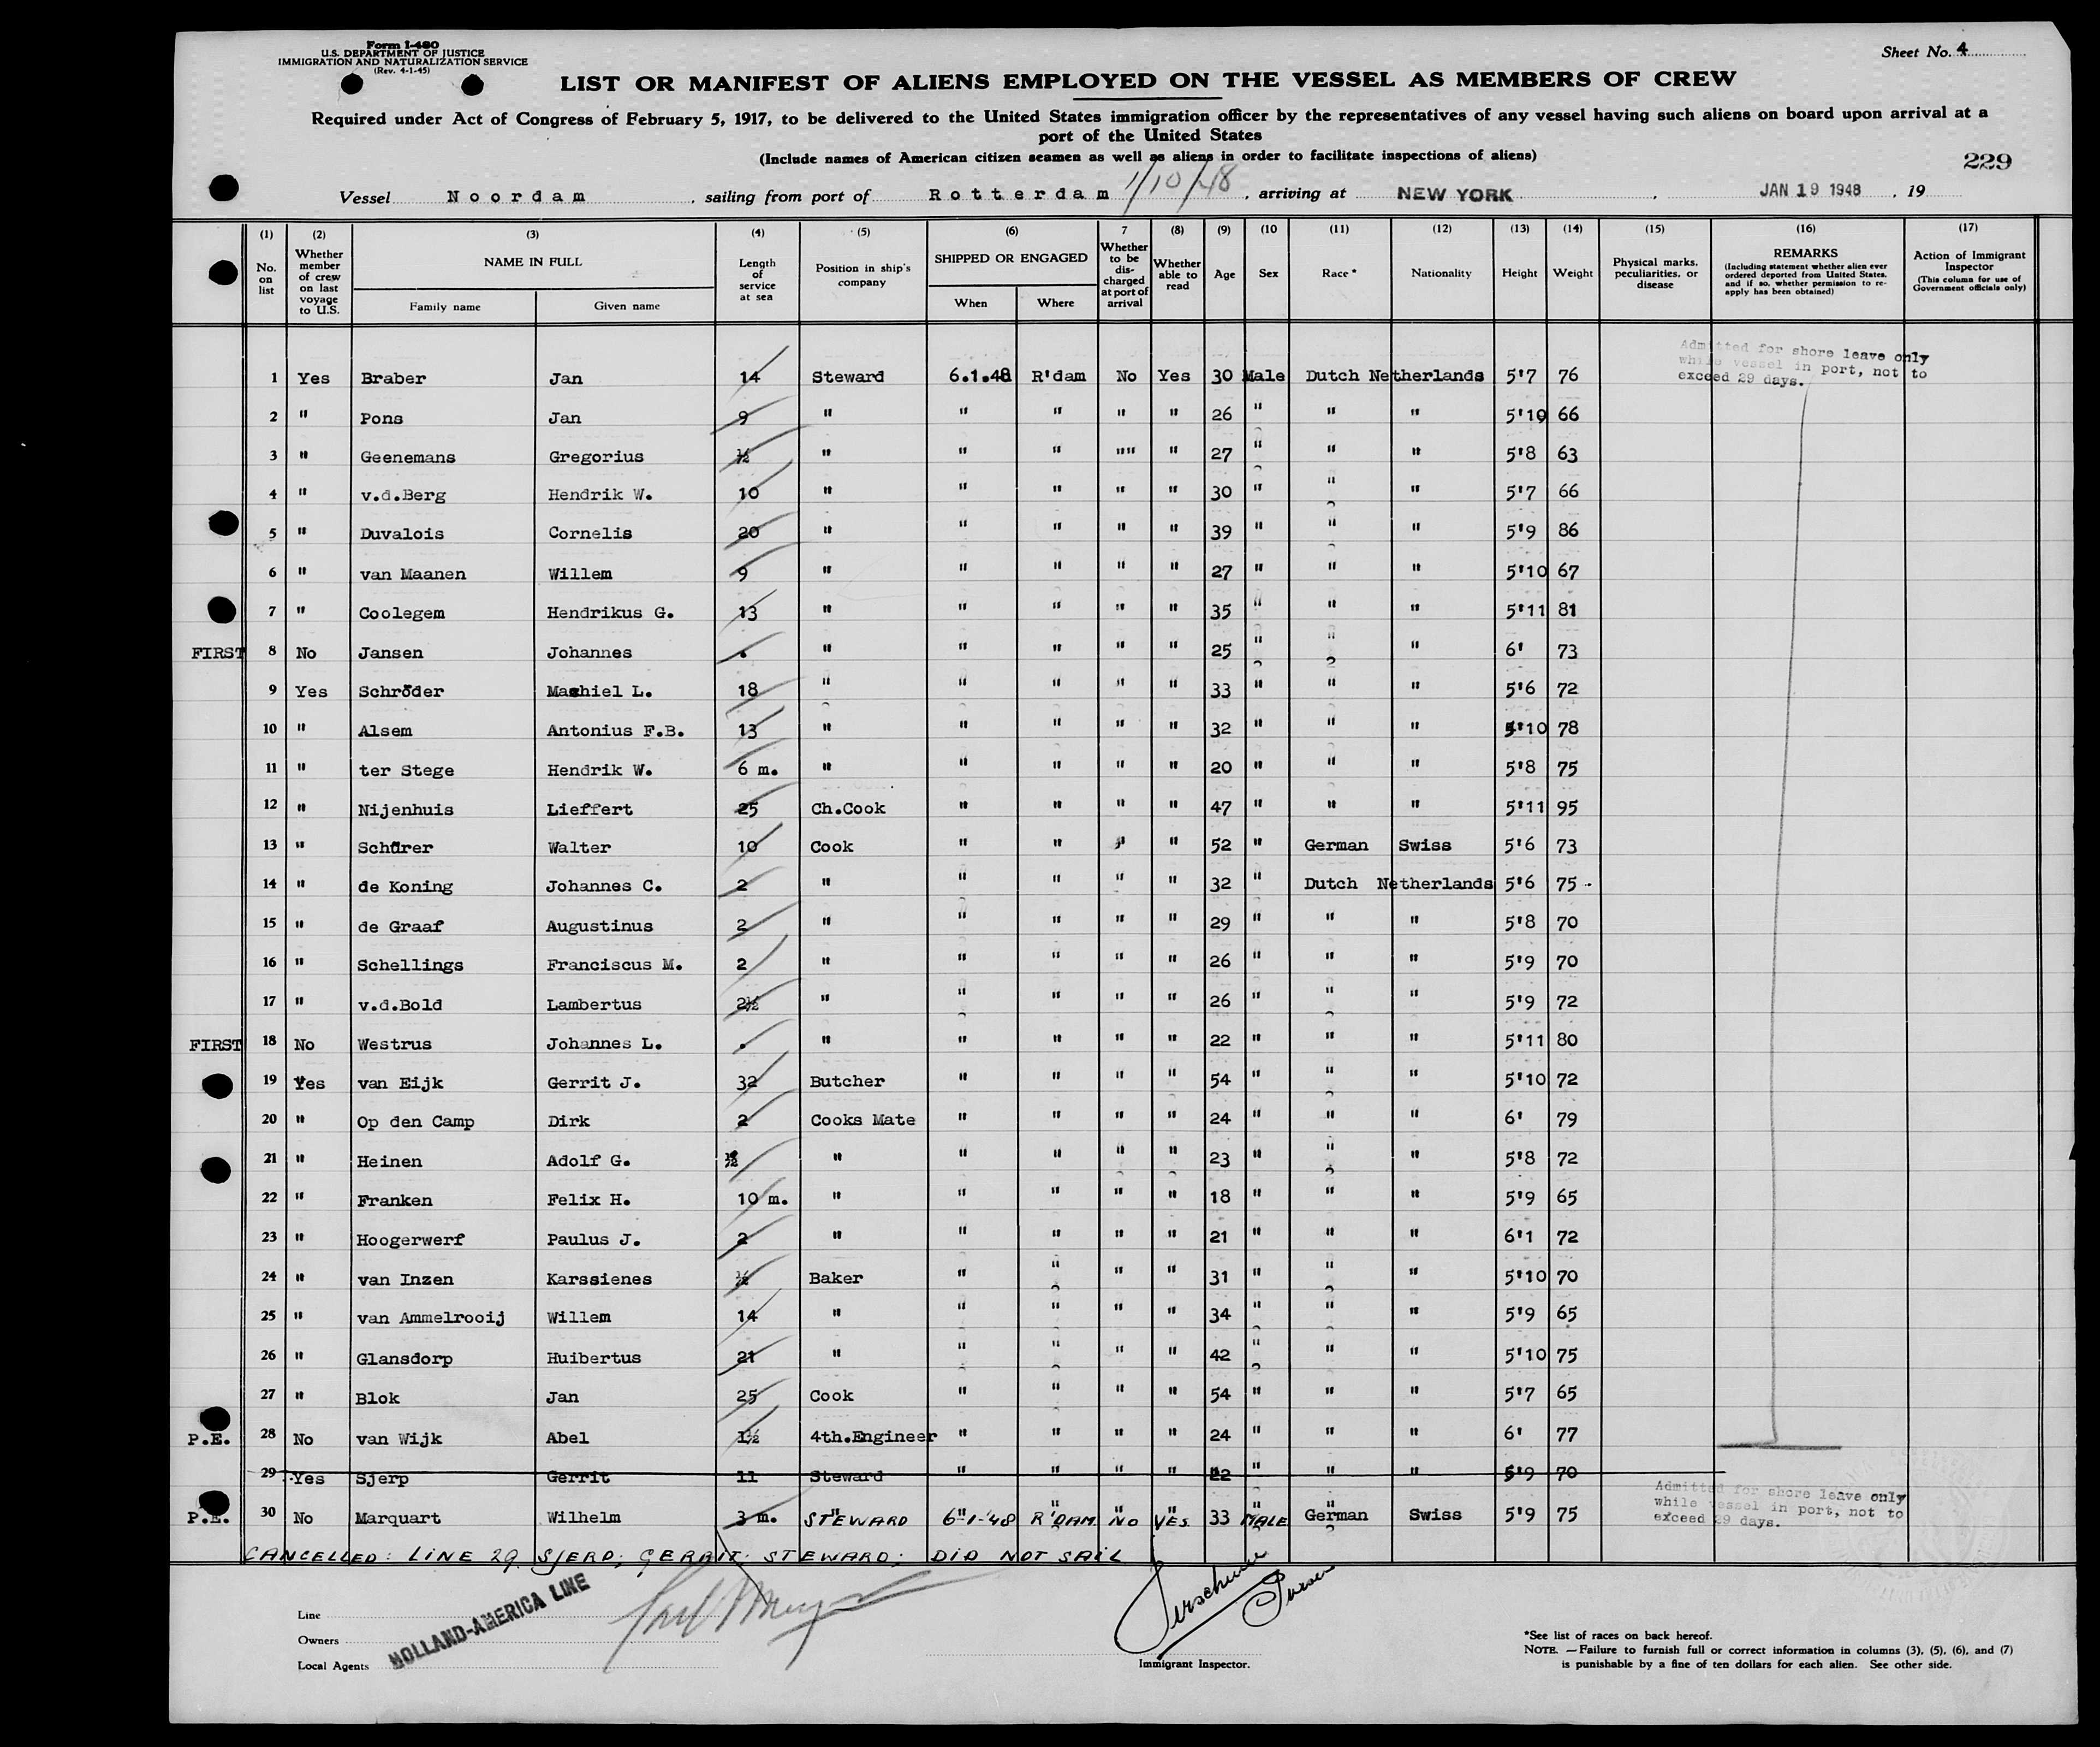 Form I-480
U.S. DEPARTMENT OF JUSTICE
IMMIGRATION AND NATURALIZATION SERVICE
(Rev. 4-1-45)
Sheet No. 4
LIST OR MANIFEST OF ALIENS EMPLOYED ON THE VESSEL AS MEMBERS OF CREW
Required under Act of Congress of February 5, 1917, to be delivered to the United States immigration officer by the representatives of any vessel having such aliens on board upon arrival at a
port of the United States
(Include names of American citizen seamen as well as aliens in order to facilitate inspections of aliens)
229
Vessel Noordam, sailing from port of Rotterdam 1/10/48, arriving at NEW YORK, JAN 19 1948, 19
(1) (2) (3) (4) (5) (6) 7 (8) (9) (10 (11) (12) (13) (14) (15) (16) (17)
No. on list
Whether member of crew on last voyage to U.S.
NAME IN FULL
Family name
Given name
Length of service at sea
Position in ship's company
SHIPPED OR ENGAGED
When
Where
Whether to be discharged at port of arrival
Whether able to read
Age
Sex
Race *
Nationality
Height
Weight
Physical marks, peculiarities, or disease
REMARKS
(Including statement whether alien ever ordered deported from United States, and if so, whether permission to reapply has been obtained)
Action of Immigrant Inspector
(This column for use of Government officials only)
Admitted for shore leave only
while vessel in port, not to
exceed 29 days.
1 Yes Braber Jan 14 Steward 6.1.48 R'dam No Yes 30 Male Dutch Netherlands 5'7 76
2 " Pons Jan 9 " " " " " 26 " " " 5'10 66
3 " Geenemans Gregorius ½ " " " "" " 27 " " " 5'8 63
4 " v.d.Berg Hendrik W. 10 " " " " " 30 " " " 5'7 66
5 " Duvalois Cornelis 20 " " " " " 39 " " " 5'9 86
6 " van Maanen Willem 9 " " " " " 27 " " " 5'10 67
7 " Coolegem Hendrikus G. 13 " " " " " 35 " " " 5'11 81
FIRST 8 No Jansen Johannes . " " " " " 25 " " " 6' 73
9 Yes Schröder Machiel L. 18 " " " " " 33 " " " 5'6 72
10 " Alsem Antonius F.B. 13 " " " " " 32 " " " 5'10 78
11 " ter Stege Hendrik W. 6 m. " " " " " 20 " " " 5'8 75
12 " Nijenhuis Lieffert 25 Ch.Cook " " " " 47 " " " 5'11 95
13 " Schürer Walter 10 Cook " " " " 52 " German Swiss 5'6 73
14 " de Koning Johannes C. 2 " " " " " 32 " Dutch Netherlands 5'6 75
15 " de Graaf Augustinus 2 " " " " " 29 " " " 5'8 70
16 " Schellings Franciscus M. 2 " " " " " 26 " " " 5'9 70
17 " v.d.Bold Lambertus 2½ " " " " " 26 " " " 5'9 72
FIRST 18 No Westrus Johannes L. . " " " " " 22 " " " 5'11 80
19 Yes van Eijk Gerrit J. 32 Butcher " " " " 54 " " " 5'10 72
20 " Op den Camp Dirk 2 Cooks Mate " " " " 24 " " " 6' 79
21 " Heinen Adolf G. ½ " " " " " 23 " " " 5'8 72
22 " Franken Felix H. 10 m. " " " " " 18 " " " 5'9 65
23 " Hoogerwerf Paulus J. 2 " " " " " 21 " " " 6'1 72
24 " van Inzen Karssienes ½ Baker " " " " 31 " " " 5'10 70
25 " van Ammelrooij Willem 14 " " " " " 34 " " " 5'9 65
26 " Glansdorp Huibertus 21 " " " " " 42 " " " 5'10 75
27 " Blok Jan 25 Cook " " " " 54 " " " 5'7 65
P.E. 28 No van Wijk Abel 1½ 4th.Engineer " " " " 24 " " " 6' 77
29 Yes Sjerp Gerrit 11 Steward " " " " 22 " " " 5'9 70
Admitted for shore leave only
while vessel in port, not to
exceed 29 days.
P.E. 30 No Marquart Wilhelm 3 m. " STEWARD 6"-1-'48 R'DAM. NO YES. 33 MALE German Swiss 5'9 75
CANCELLED: LINE 29. SJERP; GERRIT: STEWARD: DID NOT SAIL
Line
Owners
Local Agents
HOLLAND-AMERICA LINE
Purser
Immigrant Inspector.
*See list of races on back hereof.
NOTE. — Failure to furnish full or correct information in columns (3), (5), (6), and (7)
is punishable by a fine of ten dollars for each alien. See other side.